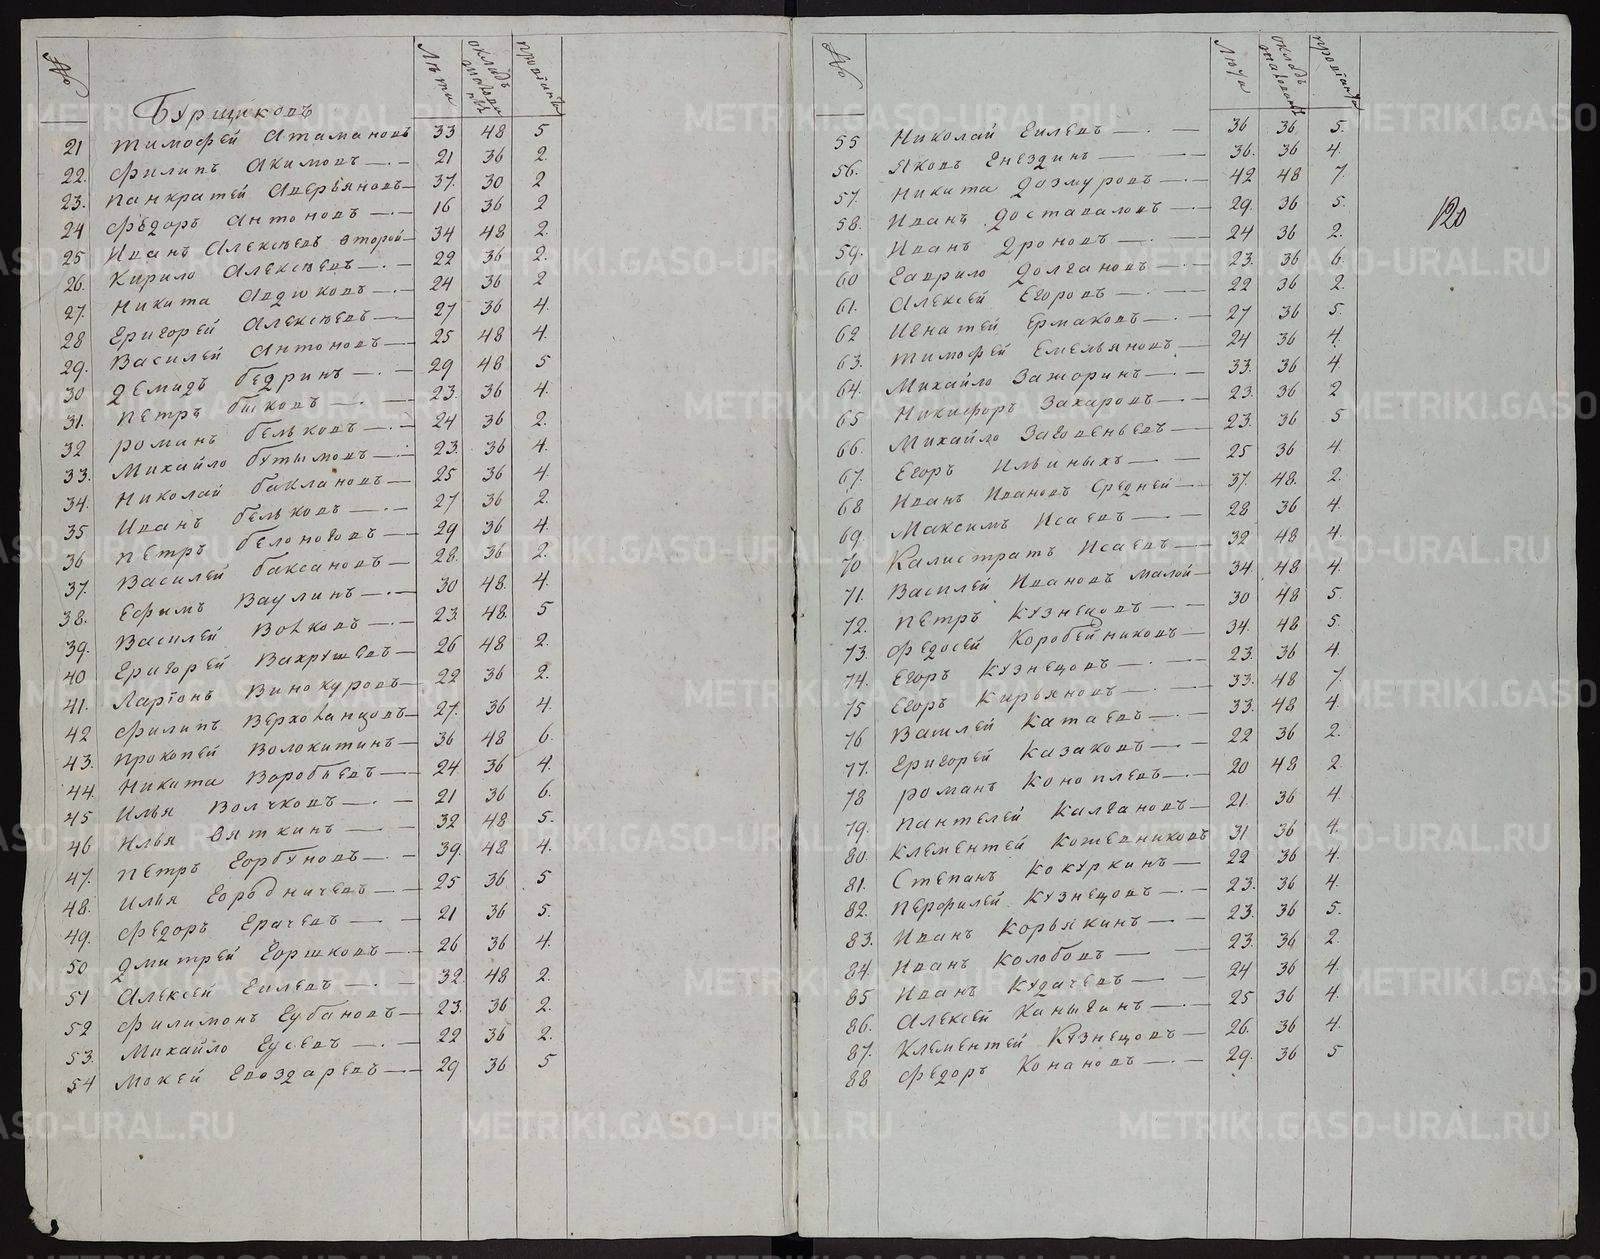 № Лѣта окладъ провіанта
Бурщиковъ
21 Тимофей Атамановъ 33 48 5
22. Филипъ Акимовъ 21 36 2.
23. Панкратей Аверьяновъ 37. 30 2
24 Федоръ Антоновъ 16 36 2
25 Иванъ Алексѣевъ второй 34 48 2.
26. Кирило Алексѣевъ 22 36 2.
27. Никита Авдюковъ 24 36 2
28 Григорей Алексѣевъ 27 36 4.
29. Василей Антоновъ 25 48 4.
30 Демидъ Бедринъ 29 48 5
31. Петръ Быковъ 23. 36 4.
32 Романъ Бельковъ 24 36 2.
33. Михайло Бутымовъ 23. 36 4.
34. Николай Баклановъ 25 36 4
35 Иванъ Бельковъ 27 36 2.
36 Петръ Белоноговъ 29 36 4.
37. Василей Баксановъ 28. 36 2.
38. Ефимъ Ваулинъ 30 48. 4.
39. Василей Волковъ 23. 48. 5
40 Григорей Вахрушевъ 26 48 2.
41. Ларіонъ Винокуровъ 22 36 2.
42 Филипъ Верхоланцовъ 27. 36 4
43. Прокопей Волокитинъ 36 48 6.
44. Никита Воробьевъ 24 36 4.
45 Илья Волчковъ 21 36 6.
46 Илья Вяткинъ 32 48 5.
47. Петръ Горбуновъ 39. 48 4.
48. Илья Городничевъ 25 36 5
49. Федоръ Грачевъ 21 36 5.
50 Дмитрей Горшковъ 26 36 4.
51 Алексей Гилевъ 32. 48 2.
52 Филимонъ Губановъ 23. 36 2.
53. Михайло Гусевъ 22 36 2.
54 Мокей Гвоздаревъ 29 36 5
№ Лѣта окладъ провіанта
120
55 Николай Гилевъ 36 36 5.
56. Яковъ Гнездинъ 36. 36 4.
57. Никита Дозмуровъ 42 48 7.
58. Иванъ Доставаловъ 29. 36 5.
59. Иванъ Дроновъ 24 36 2.
60 Гаврило Долгановъ 23. 36 6.
61. Алексей Егоровъ 22 36 2.
62 Игнатей Ермаковъ 27 36 5.
63. Тимофей Емельяновъ 24 36 4.
64. Михайло Зажоринъ 33. 36 4
65 Никифоръ Захаровъ 23. 36 2
66. Михайло Заговеньевъ 23. 36 5
67. Егоръ Ильиныхъ 25 36 4
68 Иванъ Ивановъ Средней 37. 48. 2.
69. Максимъ Исаевъ 28 36 4.
70 Калистратъ Исаевъ 32 48 4.
71. Василей Ивановъ малой 34 48 4.
72. Петръ Кузнецовъ 30 48 5.
73. Федосей Коробейниковъ 34. 48 5.
74. Егоръ Кузнецовъ 23. 36 4.
75 Егоръ Кирьяновъ 33. 48 7.
76 Василей Катаевъ 33. 48 4.
77. Григорей Казаковъ 22 36 2.
78 Романъ Коноплевъ 20 48 2.
79. Пантелей Калгановъ 21. 36 4.
80. Клементей Кожевниковъ 31 36 4.
81. Степанъ Кокуркинъ 22 36 4.
82. Перфилей Кузнецовъ 23. 36 4.
83. Иванъ Корьякинъ 23. 36 5.
84. Иванъ Колобовъ 23. 36 2.
85 Иванъ Кудачевъ 24 36 4.
86. Алексей Каныгинъ 25 36 4.
87. Клементей Кузнецовъ 26. 36 4.
88 Федоръ Конановъ 29. 36 5
METRIKI.GASO-URAL.RU